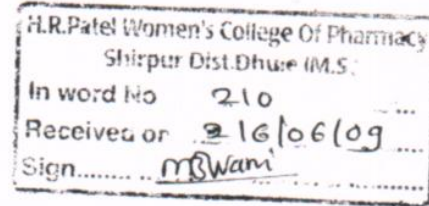 H.R.Patel Women's College Of Pharmacy
Shirpur Dist.Dhule (M.S.
In word No 210
Received on 16/06/09
Sign